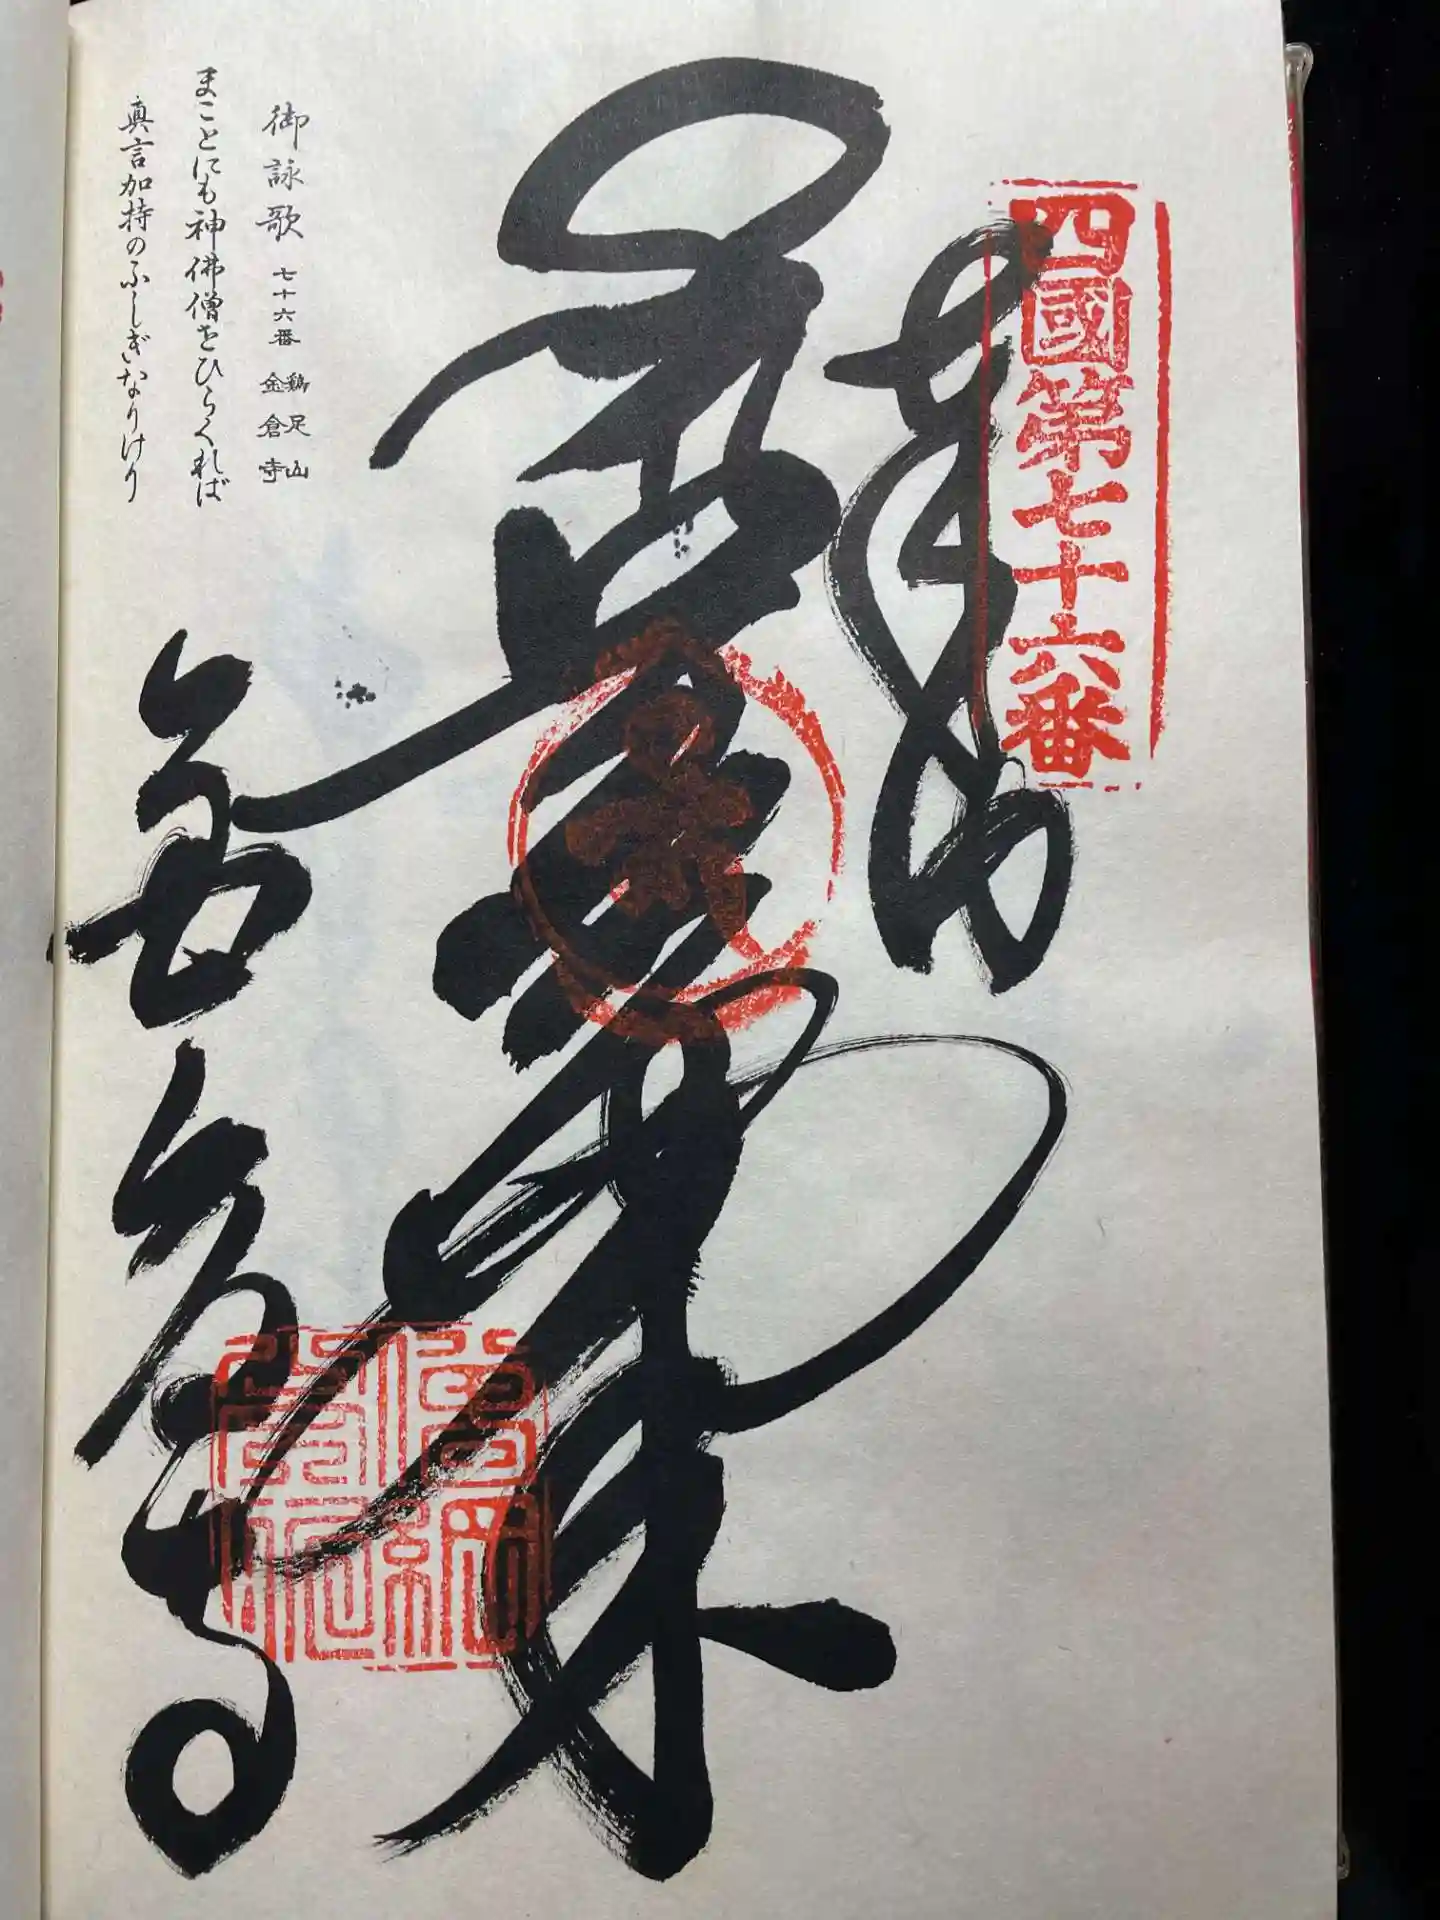 四國第七十六番
奉納
薬師如来
金倉寺
御詠歌 七十六番 鶏足山 金倉寺
まことにも神佛僧をひらくれば
真言加持のふしぎなりけり